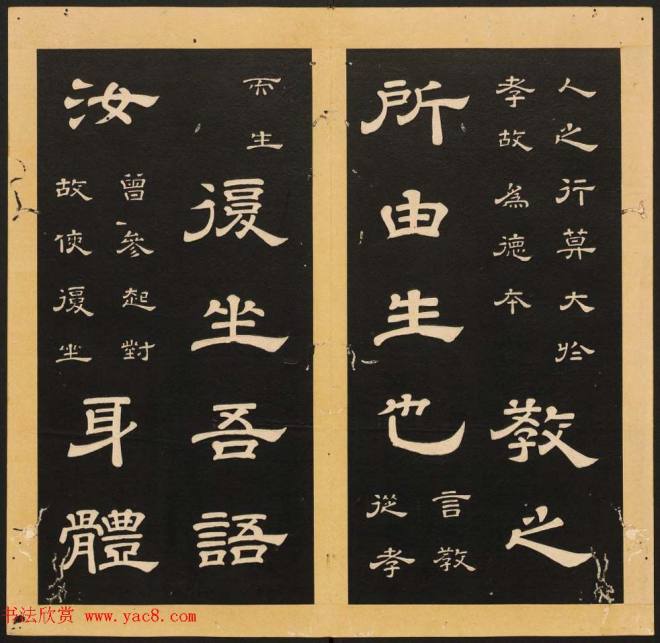 人之行莫大於
孝故為德本
教之
所由生也
言教
從孝
而生
復坐吾語
汝
曾參起對
故使復坐
身體
书法欣赏 www.yac8.com